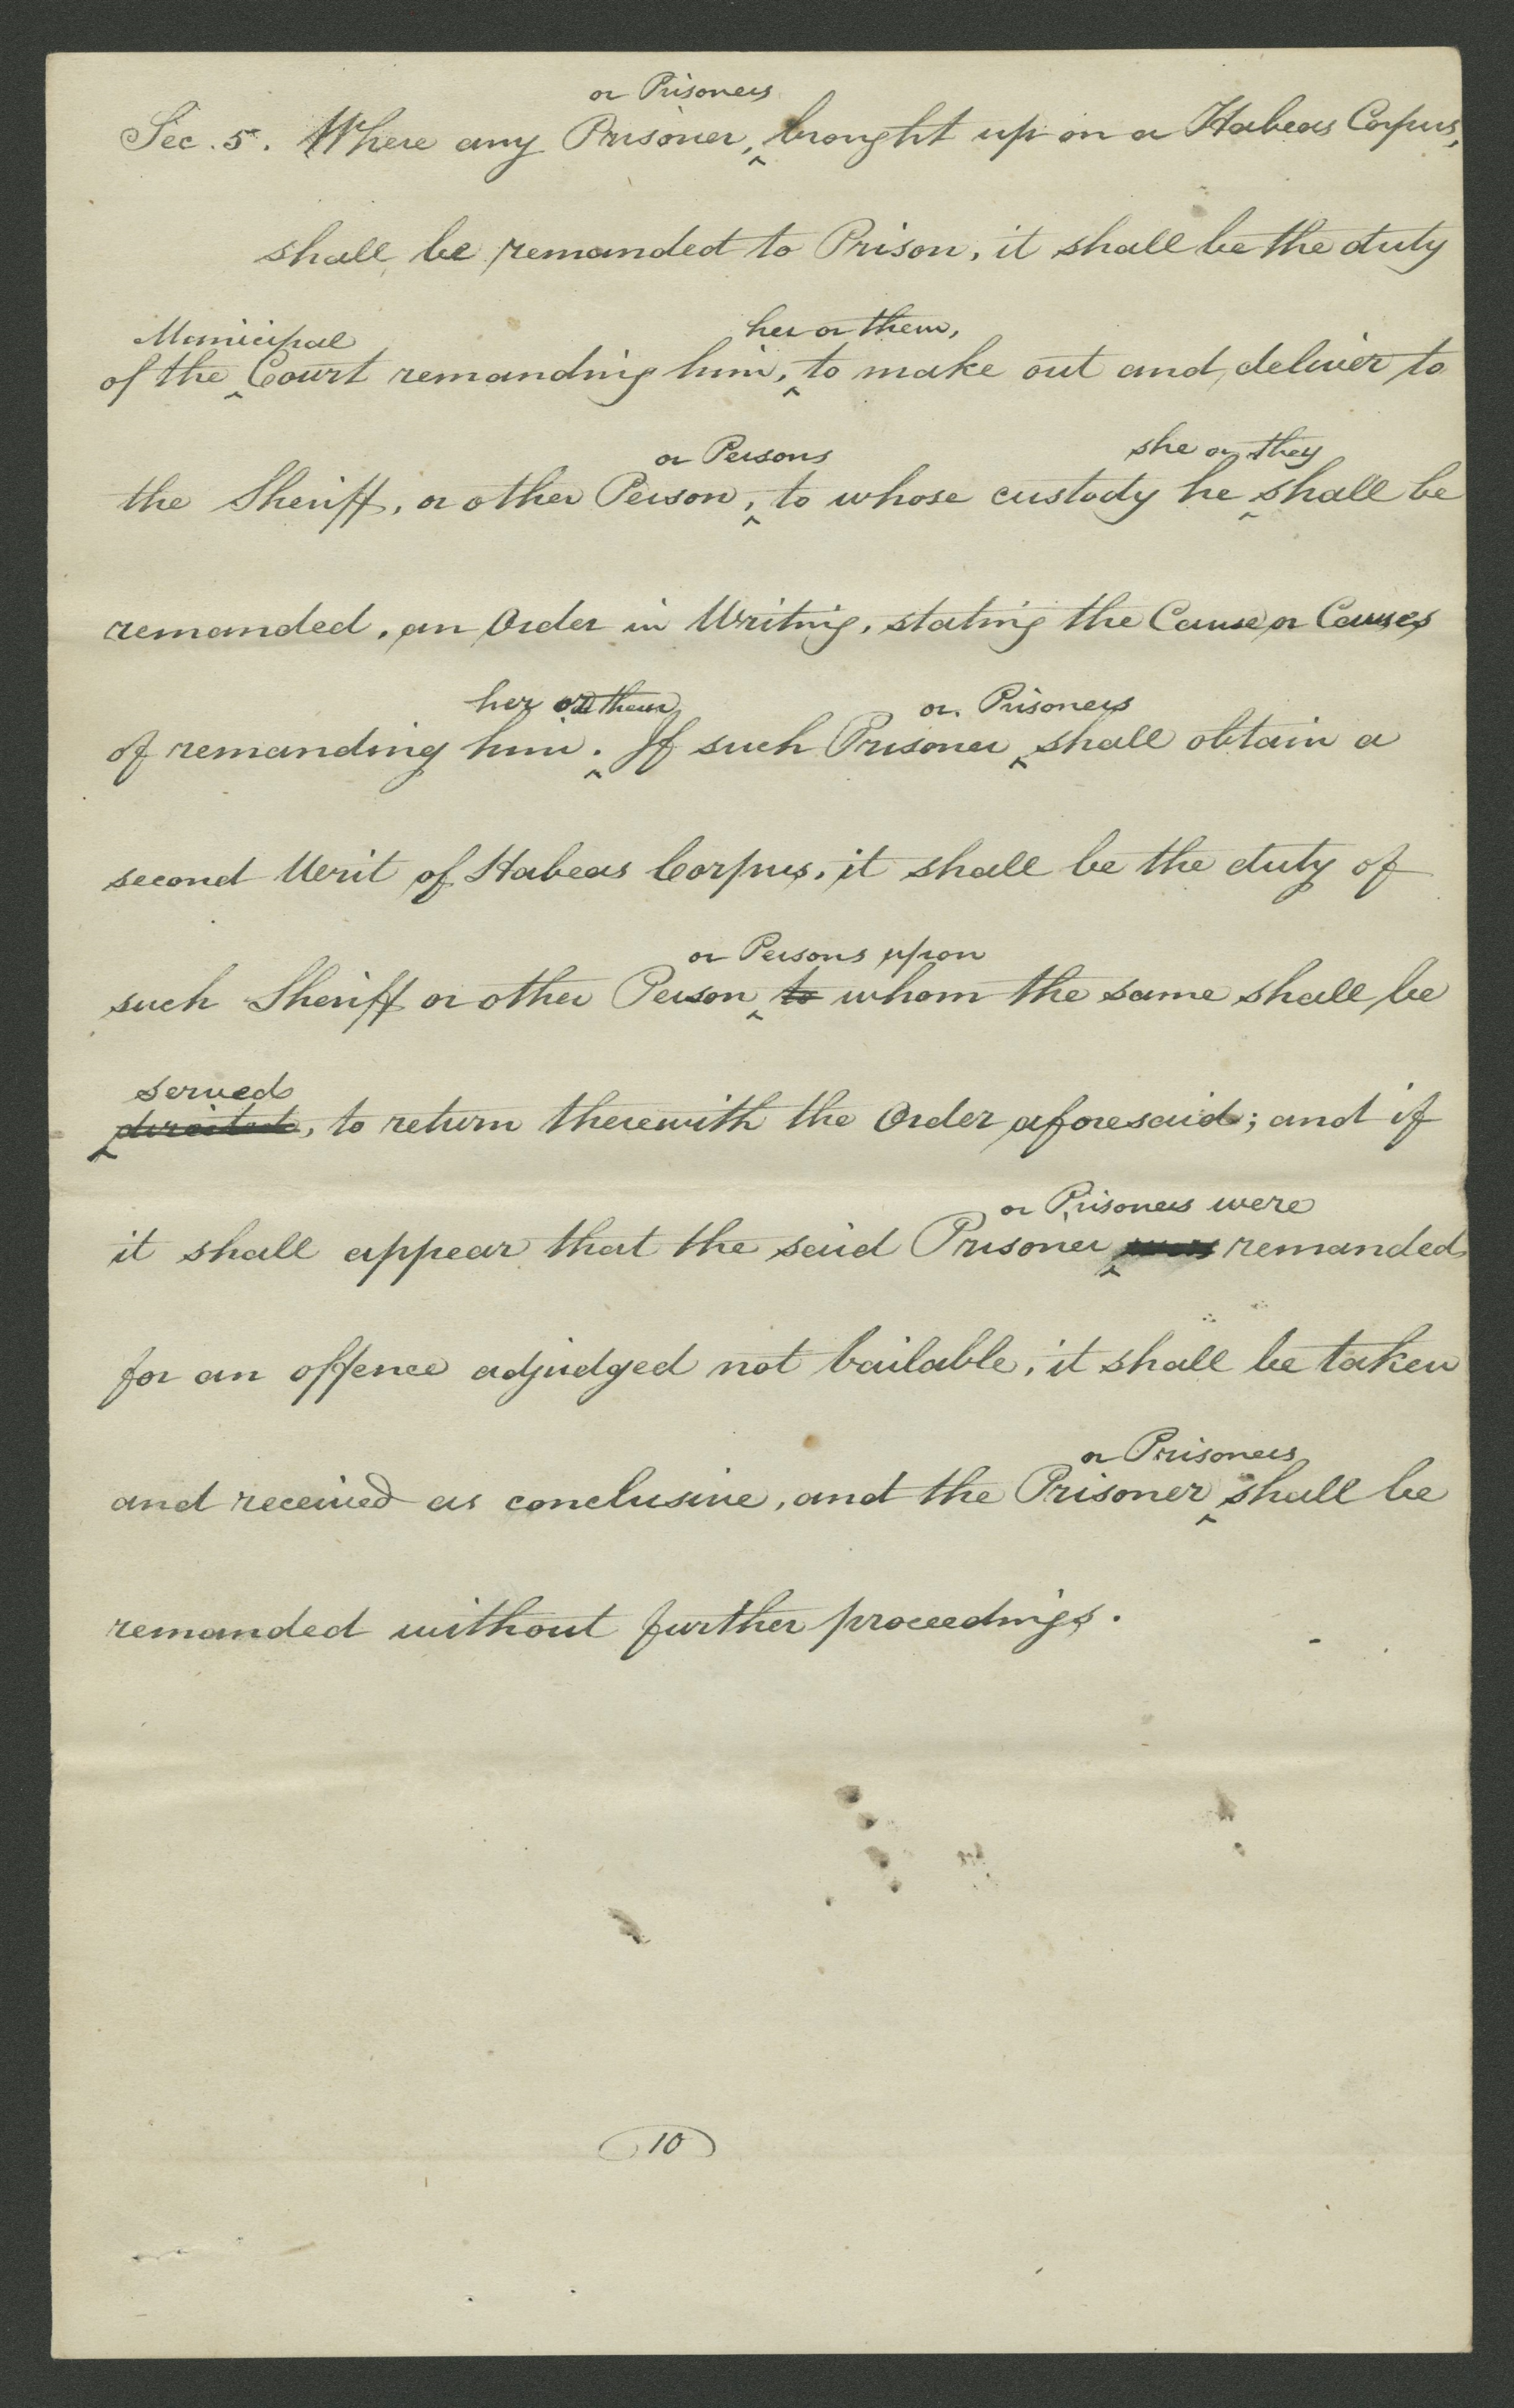 or Prisoners
Sec. 5. Where any Prisoner, ^ brought up on a Habeas Corpus,
shall be remanded to Prison, it shall be the duty
Municipal her or them,
of the ^ Court remanding him, ^ to make out and deliver to
or Persons she or they
the Sheriff, or other Person, ^ to whose custody he ^ shall be
remanded, an Order in Writing, stating the Cause or Causes
her or them or Prisoners
of remanding him ^. If such Prisoner ^ shall obtain a
second Writ of Habeas Corpus, it shall be the duty of
or Persons upon
such Sheriff or other Person ^ to whom the same shall be
served
^ directed, to return therewith the Order aforesaid; and if
or Prisoners were
it shall appear that the said Prisoner ^ was remanded
for an offence adjudged not bailable, it shall be taken
or Prisoners
and received as conclusive, and the Prisoner ^ shall be
remanded without further proceedings.
10